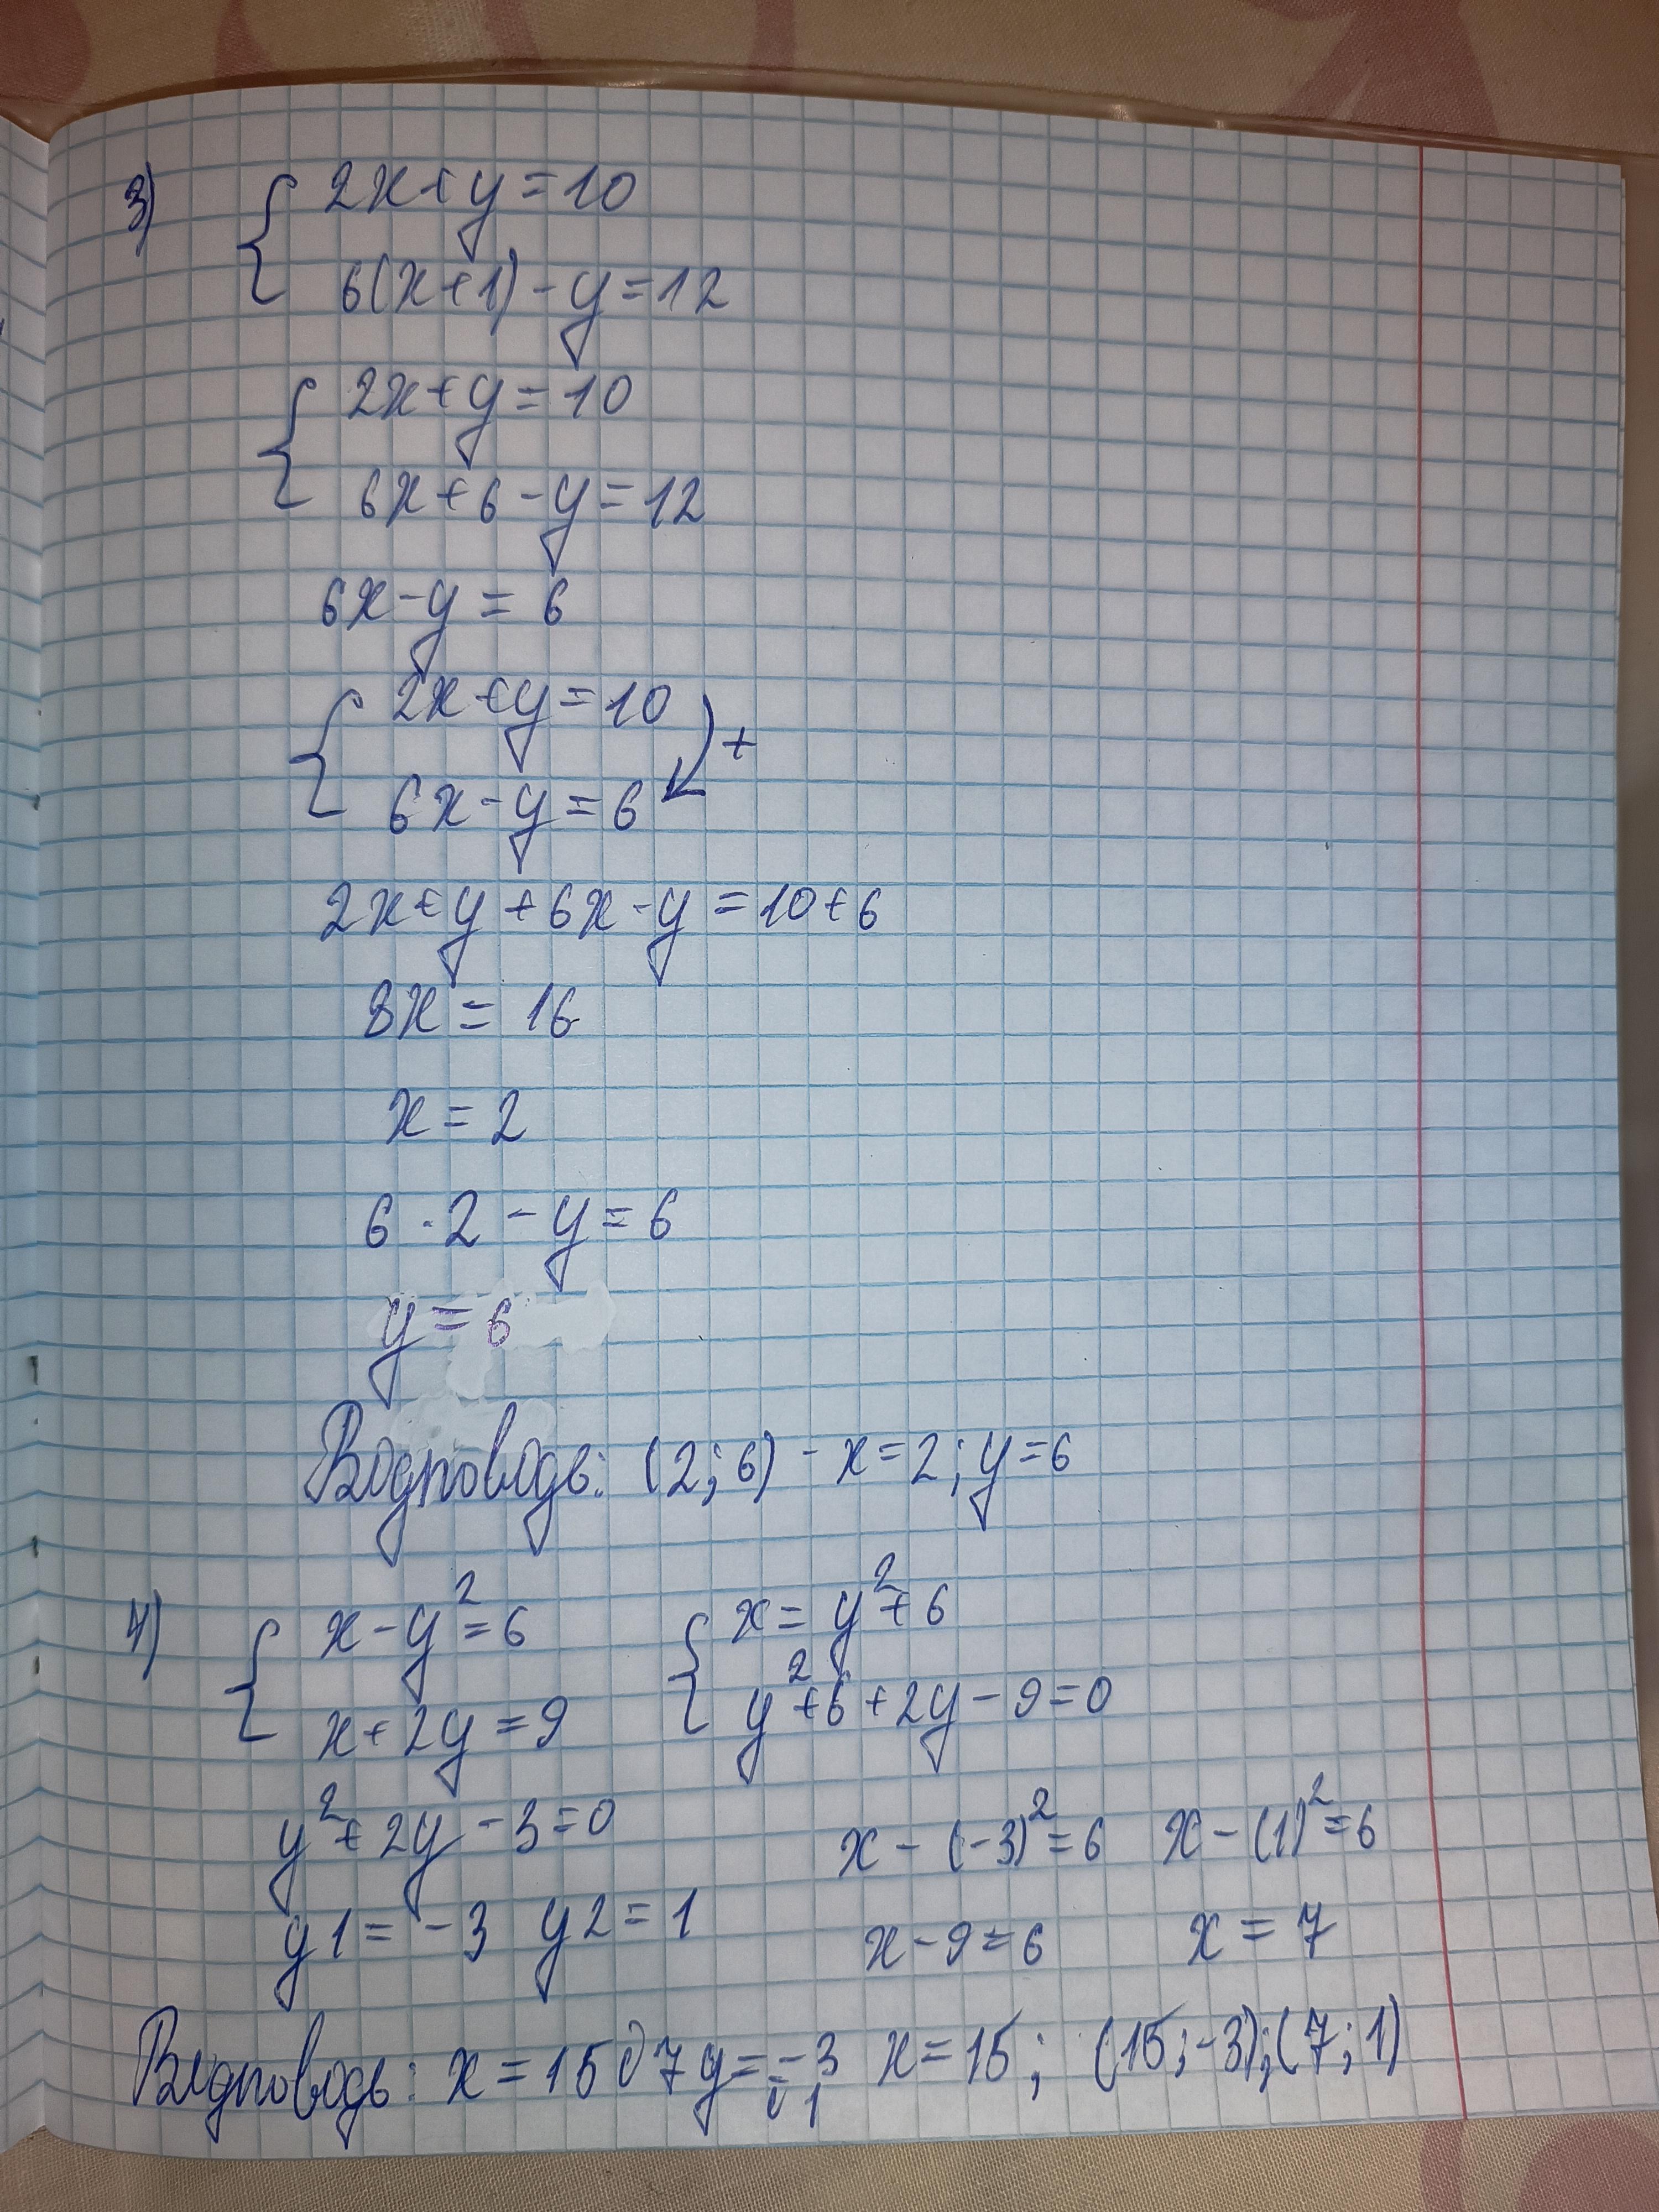 3) { 2x+y=10
6(x+1)-y=12
{ 2x+y=10
6x+6-y=12
6x-y=6
{ 2x+y=10
6x-y=6 +
2x+y+6x-y=10+6
8x=16
x=2
6·2-y=6
y=6
Відповідь: (2;6) - x=2; y=6
4) { x-y²=6
x+2y=9
{ x=y²+6
y²+6+2y-9=0
y²+2y-3=0
y1=-3 y2=1
x-(-3)²=6 x-(1)²=6
x-9=6 x=7
x=15;
Відповідь: x=15 і 7 y=-3 і 1 (15;-3);(7;1)